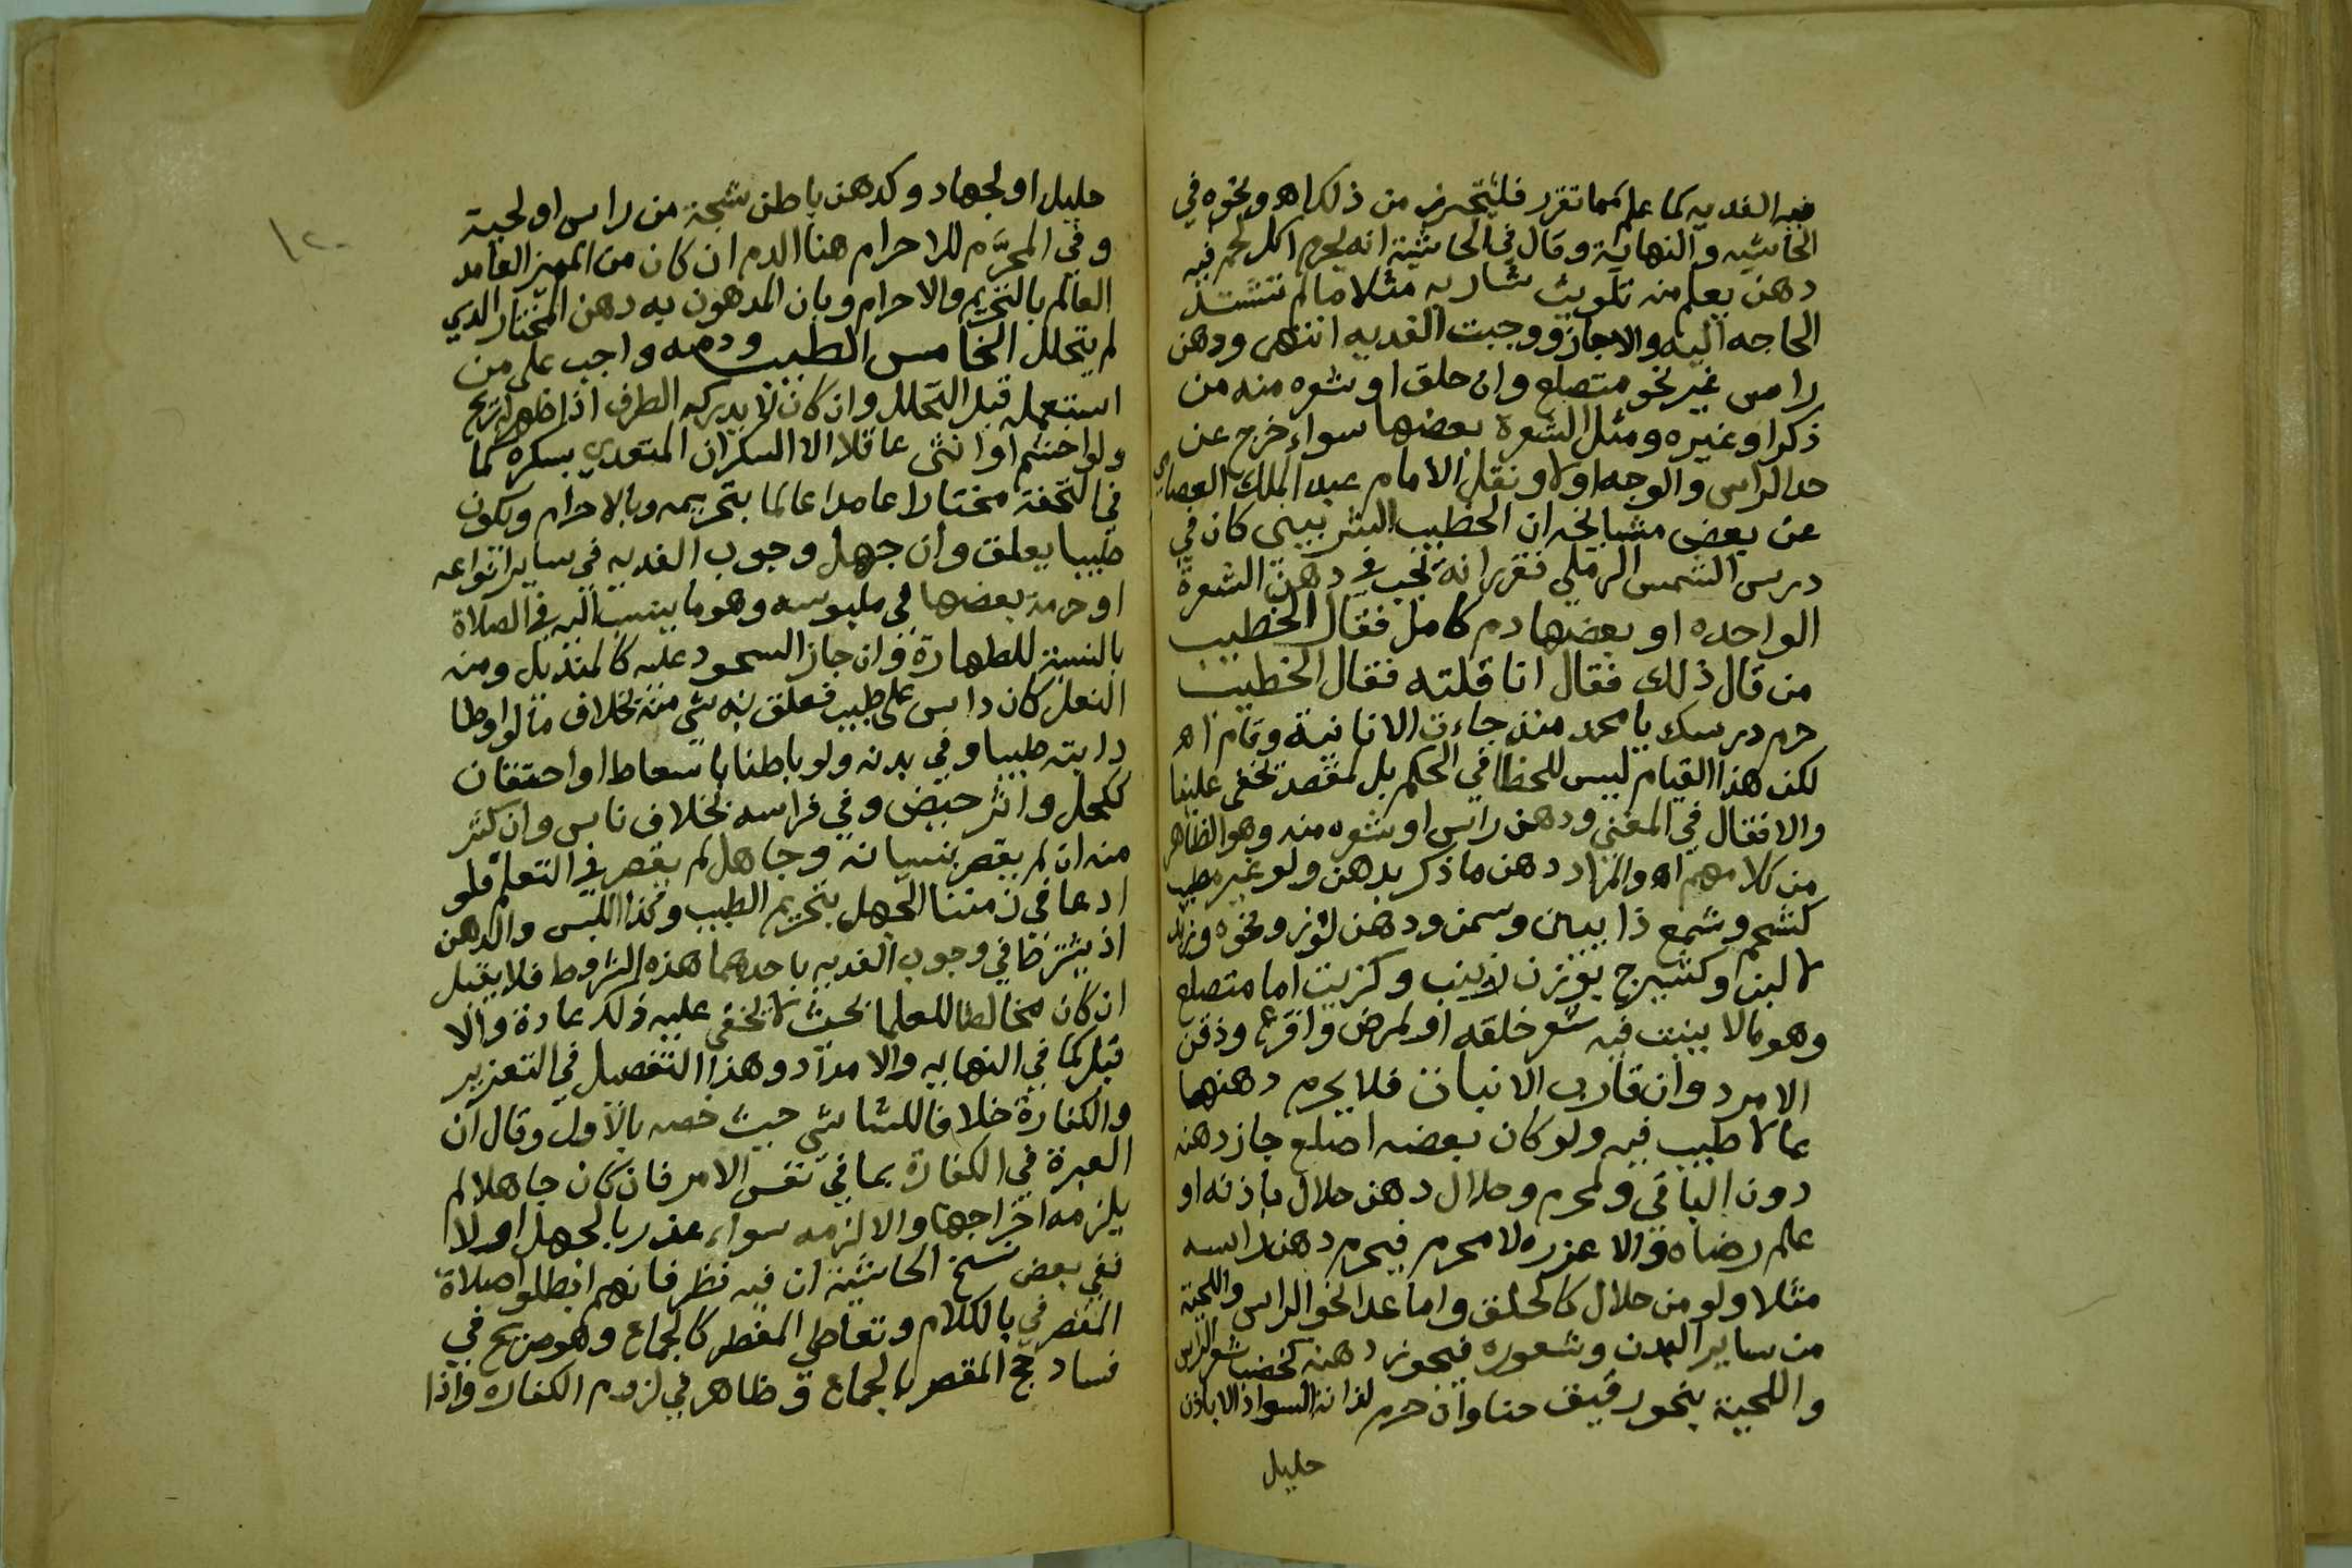 فيه الفديه كما علم مما تقرر فليتحرز من ذلك اه ونحوه في
الحاشيه والنهاية وقال في الحاشية انه يحرم اكل لحم فيه
دهن يعلم منه تلويث شاربه مثلا ما لم تشتد
الحاجه اليه والا جاز ووجبت الفديه انتهى ودهن
راس غير نحو متصلع وان حلق او شعره منه من
ذكر او غيره ومثل الشعرة بعضها سواء خرج عن
حد الراس والوجه اولا ونقل الامام عبد الملك العصامي
عن بعض مشايخه ان الخطيب الشربيني كان في
درس الشمس الرملي فقرر انه تجب في دهن الشعرة
الواحده او بعضها دم كامل فقال الخطيب
من قال ذلك فقال انا قلته فقال الخطيب
حرم درسك يا محمد منذ جاءت الانانية وقام اه
لكن هذا القيام ليس للخطا في الحكم بل لمقصد تخفى علينا
والا فقال في المغني ودهن راس او شعره منه وهو الظاهر
من كلامهم اه والمراد دهن ما ذكر بدهن ولو غير مطيب
كشحم وشمع ذايبين وسمن ودهن لوز ونحوه وزبد
لا لبن وكشيرج وكزيت اما متصلع
وهو ما لا ينبت فيه شعر خلقه او لمرض واقرع وذقن
الامرد وان قارب الانبات فلا يحرم دهنها
بما لا طيب فيه ولو كان بعضه اصلع جاز دهنه
دون الباقي ولمحرم وحلال دهن حلال باذنه او
علم رضاه والا عزره لا محرم فيحرم دهن راسه
مثلا ولو من حلال كالحلق واما عدا نحو الراس واللحية
من ساير البدن وشعوره فيجوز دهنه كخضب شعر الراس
واللحية بنحو رقيق حنا وان حرم لذاته السواد الا باذن
حليل
١٢٠
حليل او لجهاد وكدهن باطن شجة من راس او لحية
وفي المحرَّم للاحرام هنا الدم ان كان من المميز العامد
العالم بالتحريم والاحرام وبان المدهون به دهن المختار الذي
لم يتحلل الخامس الطيب ودمه واجب على من
استعمله قبل التحلل وان كان لا يدركه الطرف اذا ظهر له ريح
ولو اخشم او انثى عاقلا الا السكران المتعدي بسكره كما
في التحفة مختارا عامدا عالما بتحريمه وبالاحرام وبكون
طيبا يعلق وان جهل وجوب الفديه في ساير انواعه
او حرمة بعضها في ملبوسه وهو ما ينسب اليه في الصلاة
بالنسبة للطهارة وان جاز السجود عليه كالمنديل ومنه
النعل كان داس على طيب فعلق به شي منه بخلاف ما لو اوطا
دابته طيبا وفي بدنه ولو باطنا باسعاط او احتقان
ككحل واثر حيض وفي فراشه بخلاف ناس وان كثر
منه ان لم يقصر بنسيانه وجاهل لم يقصر في التعلم فلو
ادعا في زمننا الجهل بتحريم الطيب وكذا اللبس والدهن
اذ يشترط في وجوب الفديه باحدهما هذه الشروط فلا يقبل
ان كان مخالطا للعلما بحيث لا يخفى عليه ذلك عادة والا
قبل كما في النهايه والامداد وهذا التفصيل في التعزير
والكفارة خلافا للشاشي حيث خصه بالاول وقال ان
العبرة في الكفارة بما في نفس الامر فان كان جاهلا لم
يلزمه اخراجها والا لزمه سواء عذر بالجهل اولا
ففي بعض نسخ الحاشية ان فيه نظر فانهم ابطلوا صلاة
المقصر في بالكلام وتعاطي المفطر كالجماع وهو صريح في
فساد حج المقصر بالجماع وظاهر في لزوم الكفاره واذا